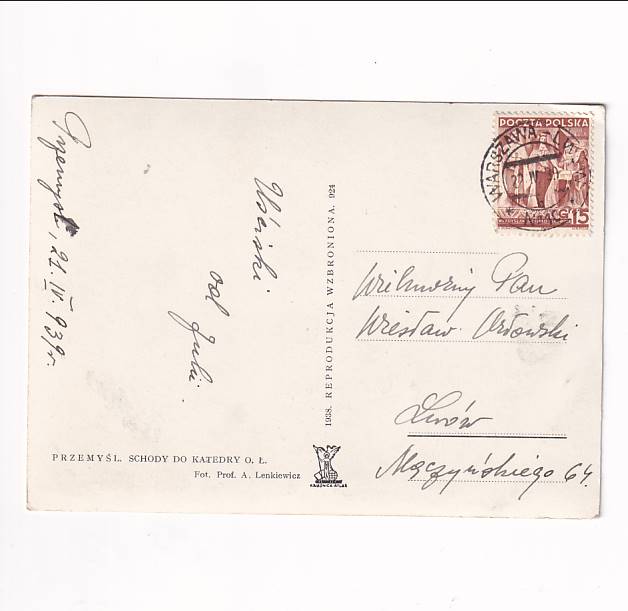 Przemyśl, 21. IV. 939 r.
Uściski
od Juli.
1938. REPRODUKCJA WZBRONIONA. 924
POCZTA POLSKA
15
WARSZAWA
Wielmożny Pan
Wiesław Orłowski
Lwów
Mączyńskiego 64.
PRZEMYŚL. SCHODY DO KATEDRY O. Ł.
Fot. Prof. A. Lenkiewicz
KSIĄŻNICA-ATLAS